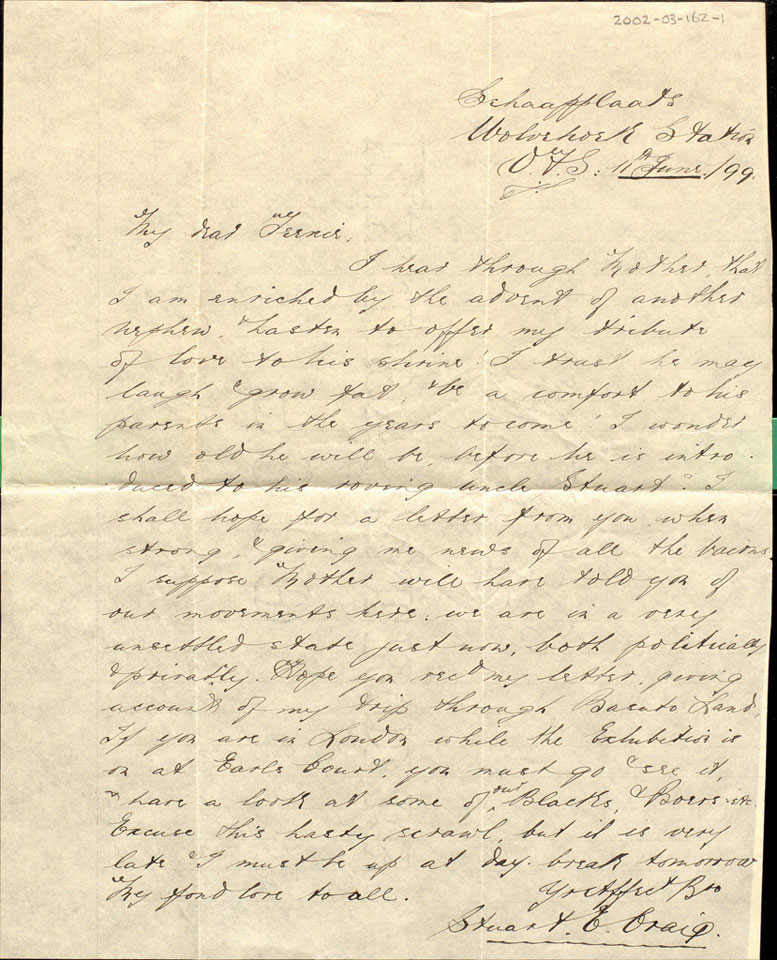 2002-03-162-1
Schaapplaats
Wolvehoek Station
O.F.S: 11th June/99.
My dear Ternie,
I hear through Mother, that
I am enriched by the advent of another
nephew, & hasten to offer my tribute
of love to his shrine! I trust he may
laugh & grow fat, & be a comfort to his
parents in the years to come! I wonder
how old he will be, before he is intro-
duced to his roving uncle Stuart? I
shall hope for a letter from you when
strong, & giving me news of all the bairns.
I suppose Mother will have told you of
our movements here: we are in a very
unsettled state just now, both politically
& privatly. Hope you recd my letter, giving
account of my trip through Basuto Land,
If you are in London while the Exhibition is
on at Earls Court, you must go & see it,
& have a look at some of our Blacks, & Boers etc.
Excuse this hasty scrawl, but it is very
late & I must be up at day-break tomorrow
My fond love to all.
Yr affect Bro
Stuart. E. Craig.